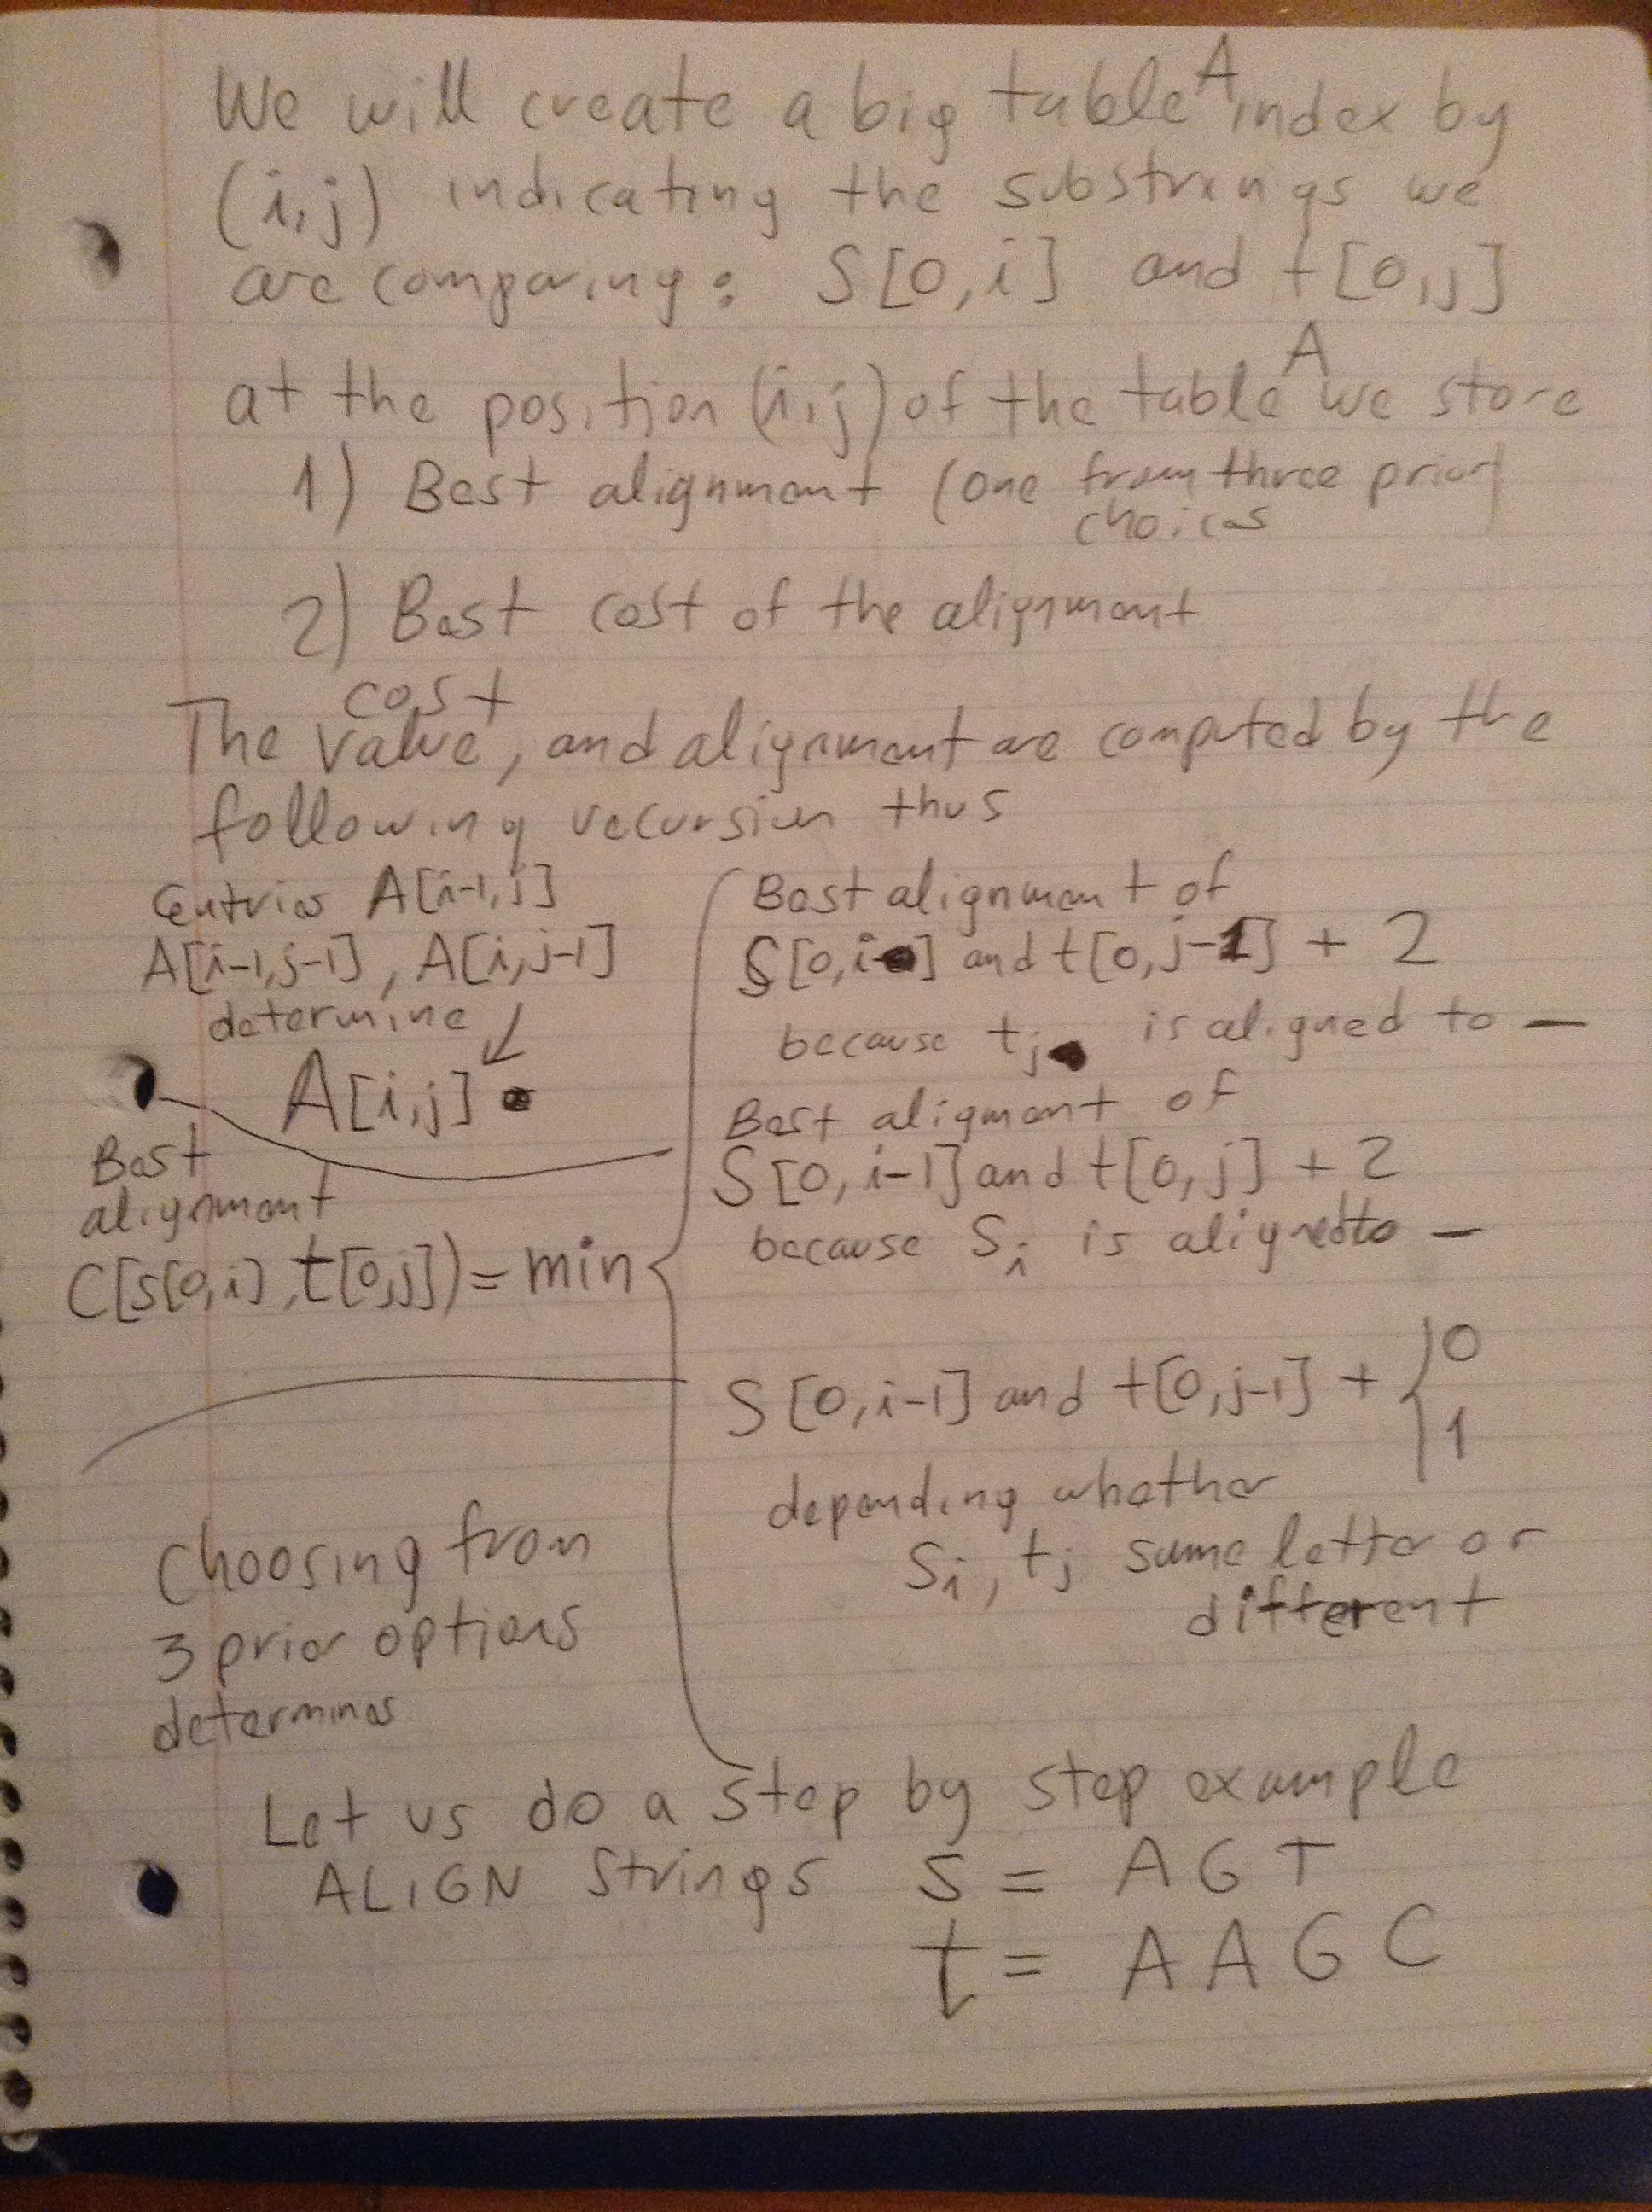 We will create a big table A index by
(i,j) indicating the substrings we
are comparing: S[0,i] and t[0,j]
at the position (i,j) of the table A we store
1) Best alignment (one from three prior
choices
2) Best cost of the alignment
cost
The value, and alignment are computed by the
following recursion thus
entries A[i-1,j]
A[i-1,j-1], A[i,j-1]
determine
A[i,j]
Best
alignment
C[S[0,i],t[0,j]) = min
Best alignment of
S[0,i] and t[0,j-1] + 2
because tj is aligned to —
Best aligment of
S[0,i-1] and t[0,j] + 2
because Si is aligned to —
S[0,i-1] and t[0,j-1] + { 0
1
depending whether
Si, tj same letter or
different
Choosing from
3 prior options
determines
Let us do a step by step example
ALIGN strings S = AGT
t = AAGC